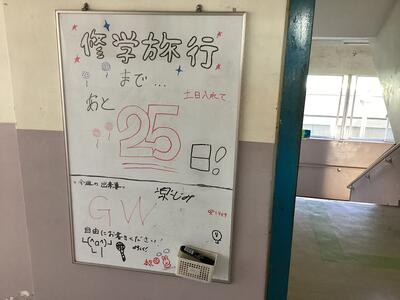 修学旅行
まで...
土日入れて
あと
25
日!
今週の出来事
楽しみ
GW
自由にお書きください!